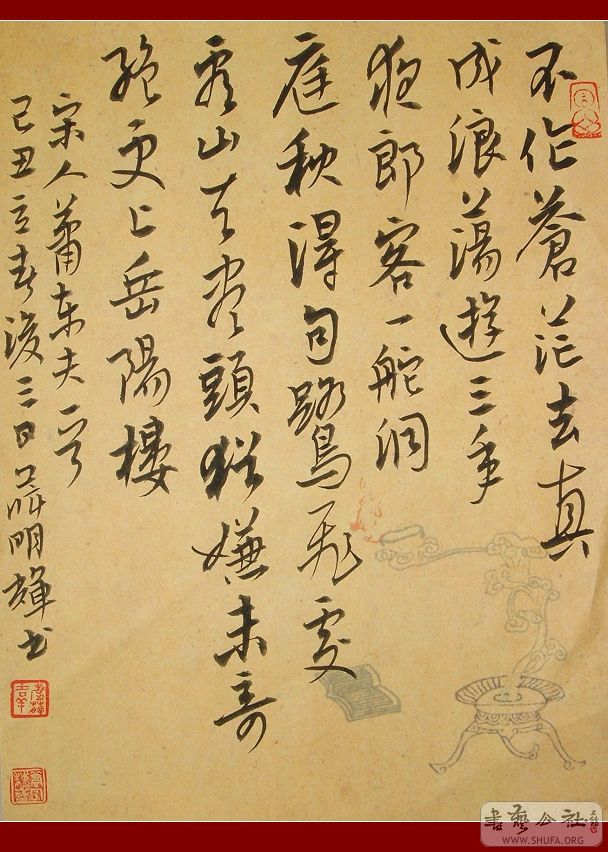 不作蒼茫去真
成浪蕩遊三年
夜郎客一舵洞
庭秋得句鷺飛處
看山天盡頭猶嫌未奇
絕更上岳陽樓
宋人蕭東夫一首
己丑立春後三日蔣明輝書
書藝公社
WWW.SHUFA.ORG